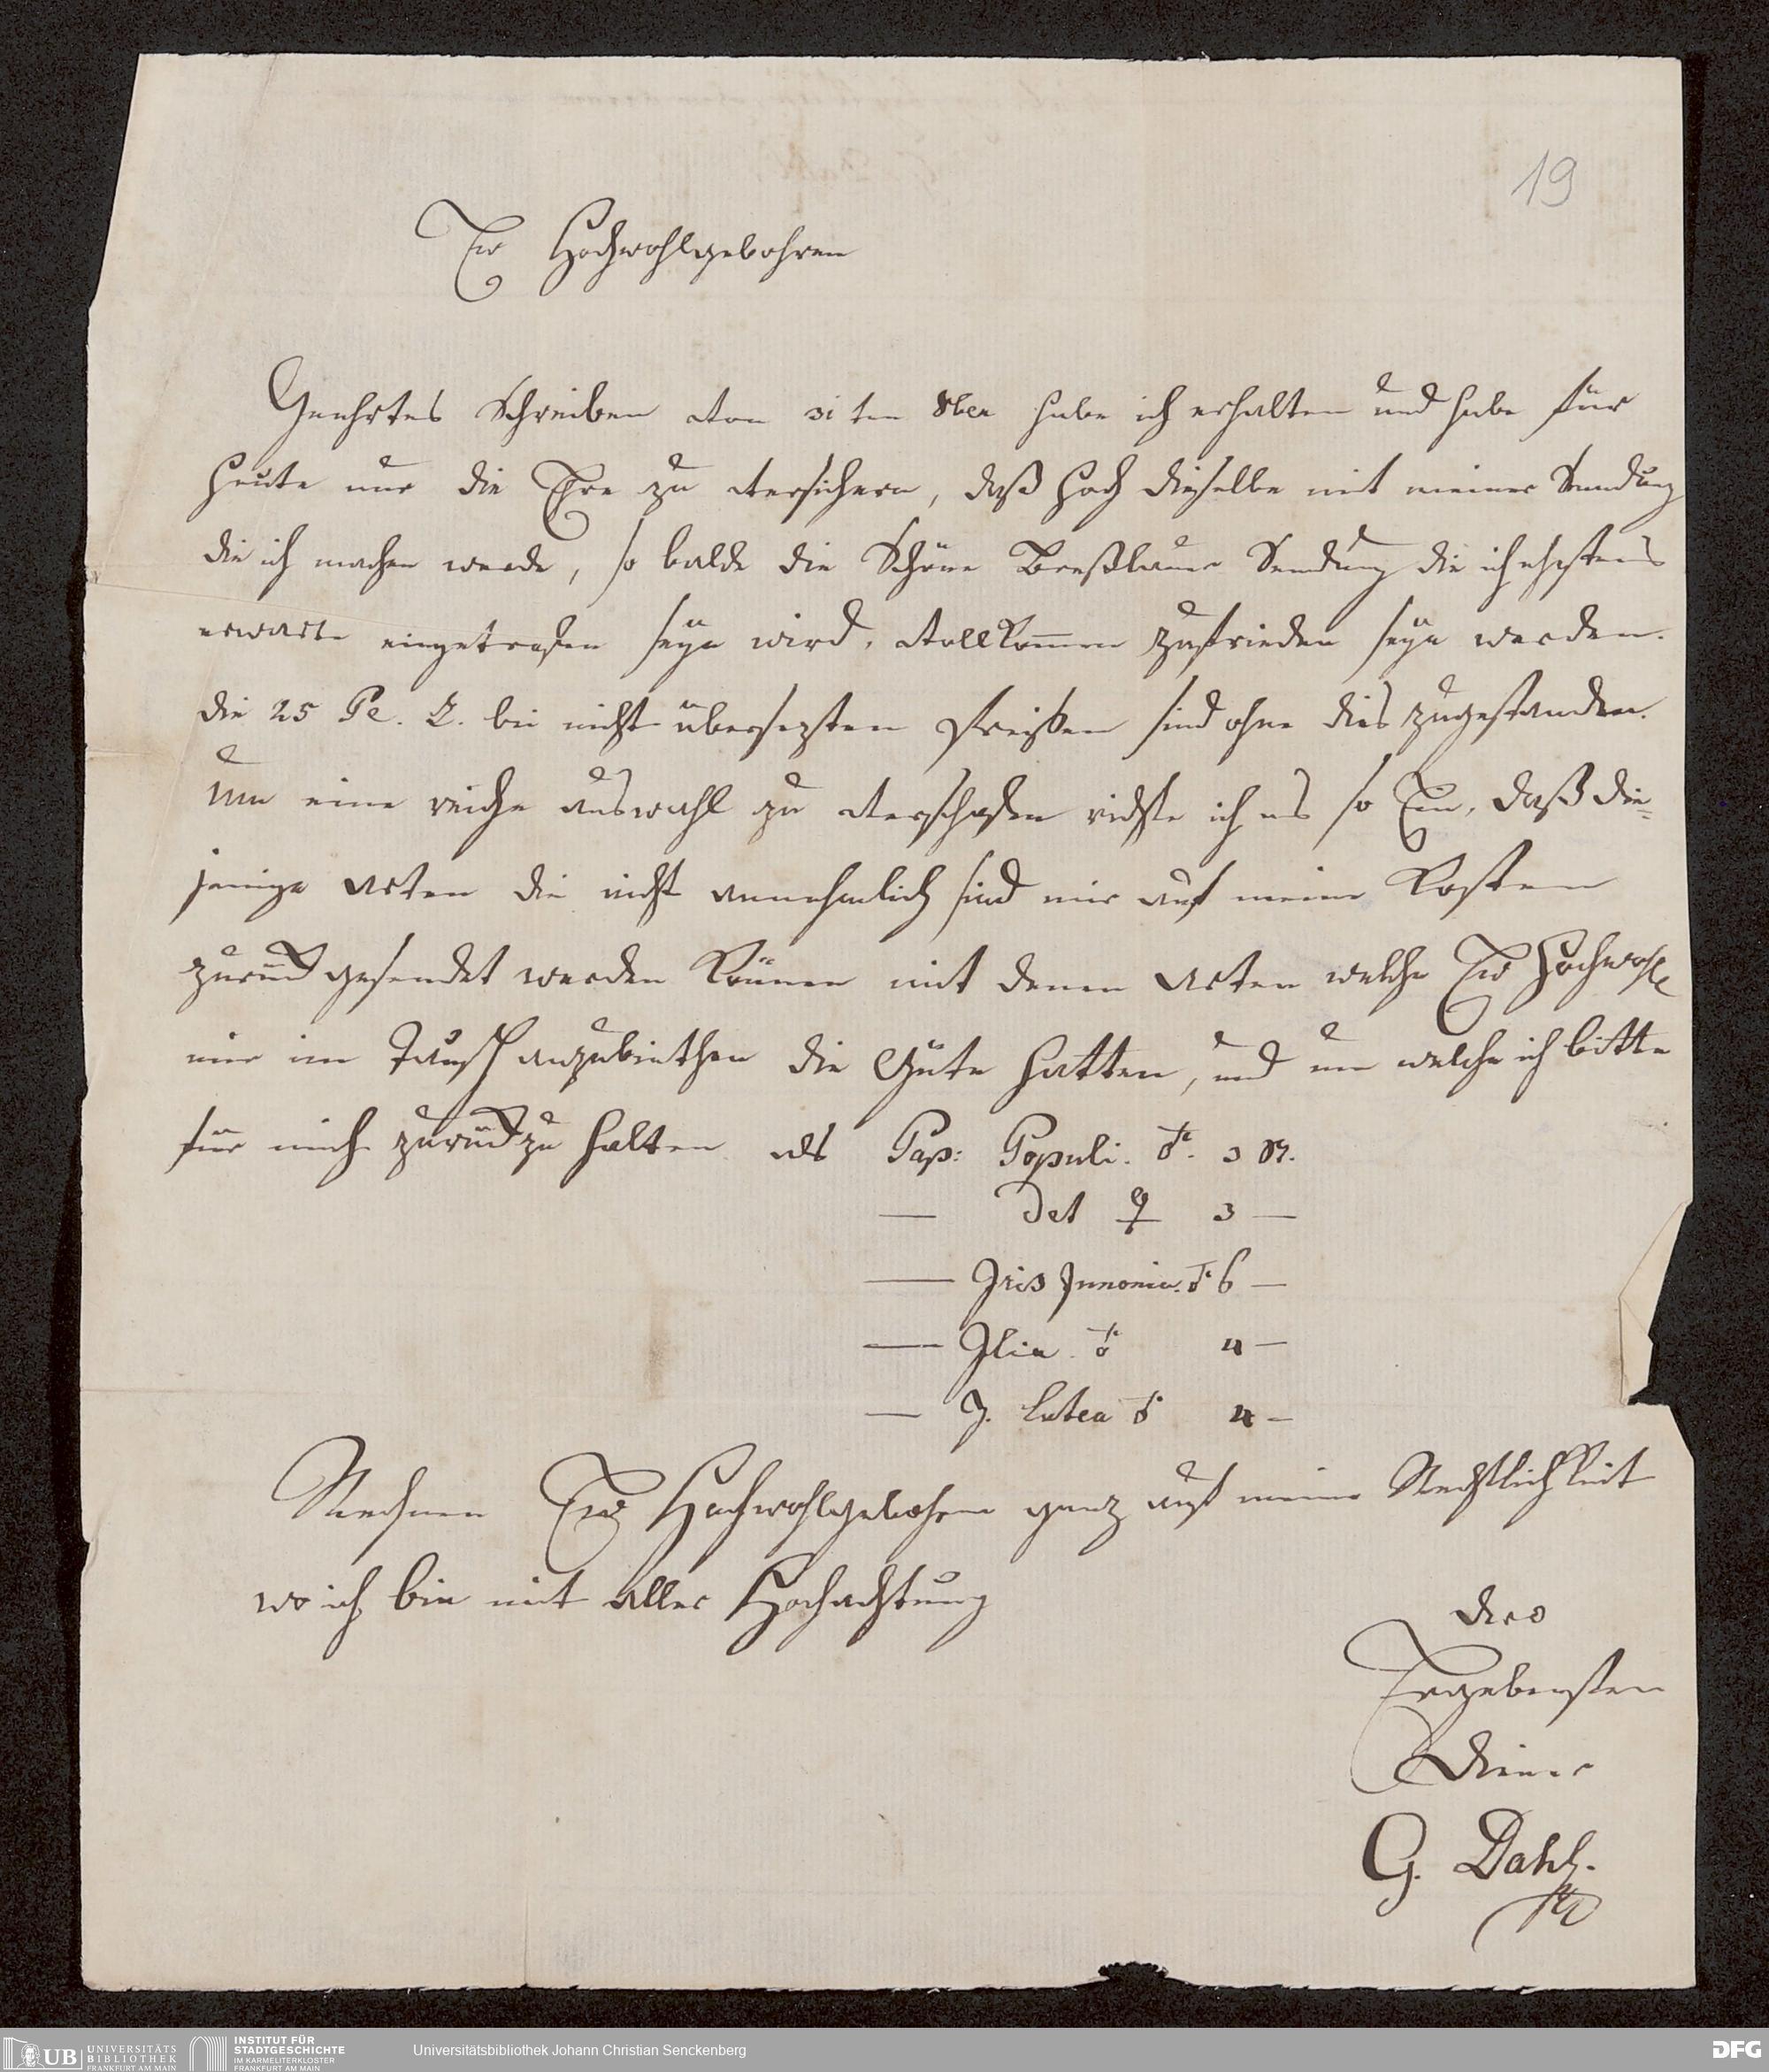 19
Ew Hochwohlgebohren
Geehrtes Schreiben vom 31 ten 8ber habe ich erhalten und habe für
heute nur die Ehre zu versichern, daß hoch dieselbe mit meiner Sendung
die ich machen werde, so balde die Schöne Breßlauer Sendung die ich ehestens
erwarte eingetrofen seÿn wird, vollkommen zufrieden seÿn werden.
die 25 Pc. bei nicht übersezten Preißen sind ohne dies zugestanden.
um eine reiche auswahl zu verschafen richte ich es so Ein, daß die=
jenige Arten die nicht annehmlich sind mir auf meine Kosten
zurück gesendet werden können mit denen Arten welche Ew Hochwohl
mir im Tausch anzubiethen die Güte hatten, und um welche ich bitte
für mich zurück zu halten als Pap: Populi. ♂. 3
— Det ♀ 3 —
— Iris Junonia. ♂ 6 —
— Ilia. ♂ 4 —
— J. lutea ♂ 4 —
Rechnen Ew Hochwohlgebohrn ganz auf meine Rechtlichkeit
wo ich bin mit aller Hochachtung
Dero
Ergebensten
Diener
G. Dahl.
UB UNIVERSITÄTS
BIBLIOTHEK
FRANKFURT AM MAIN
INSTITUT FÜR
STADTGESCHICHTE
IM KARMELITERKLOSTER
FRANKFURT AM MAIN
Universitätsbibliothek Johann Christian Senckenberg
DFG